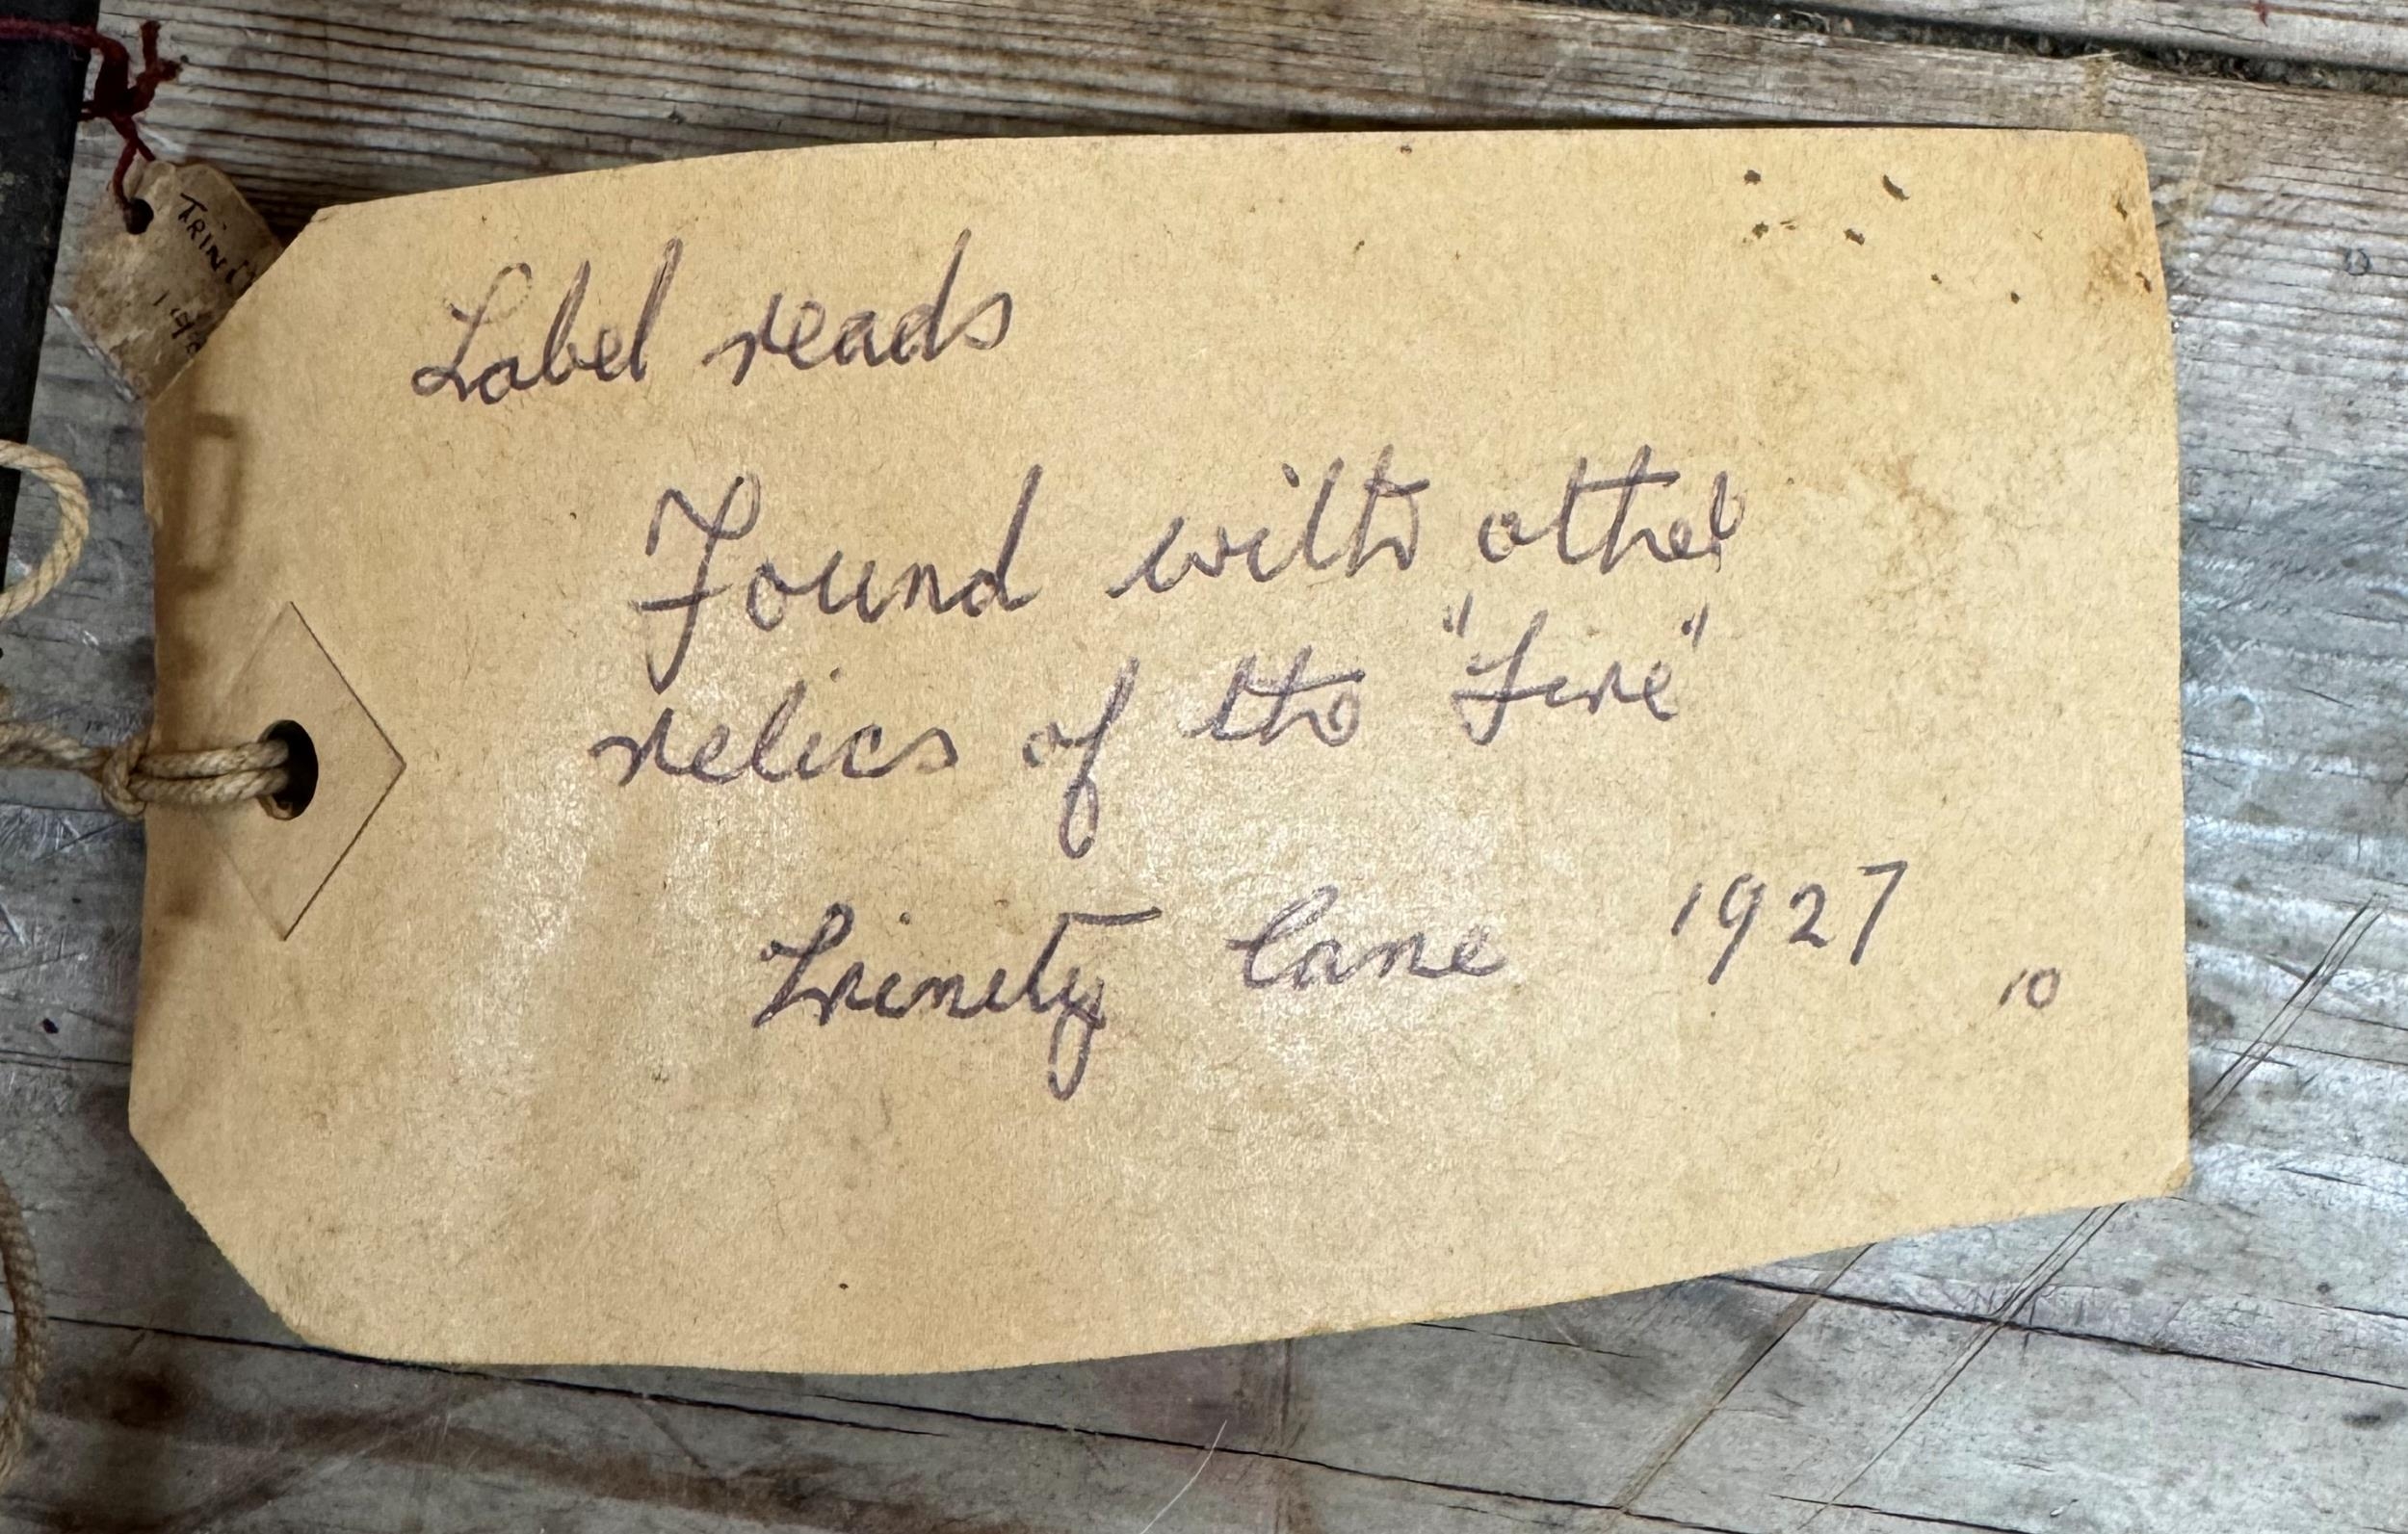 Label reads
Found with other
relics of the "Fire"
Trinity Lane 1927
10
TRINI